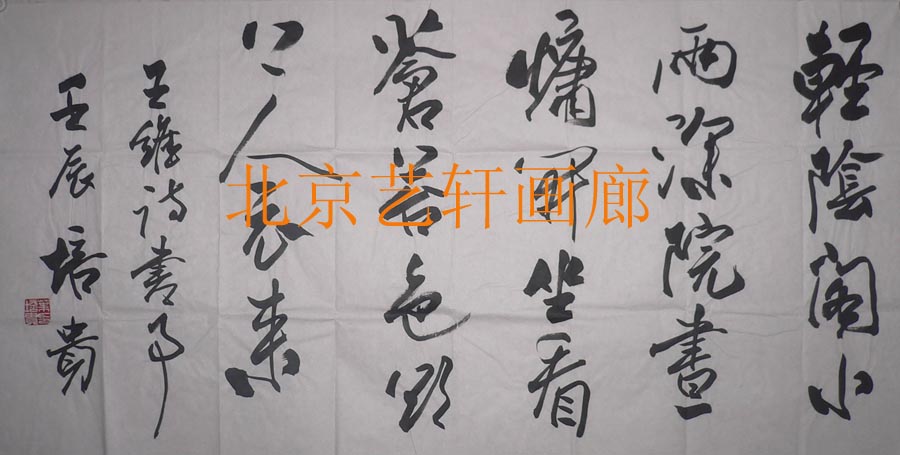 輕陰閣小
雨深院晝
慵開坐看
蒼苔色欲
上人衣來
王維詩書事
壬辰 培貴
北京艺轩画廊